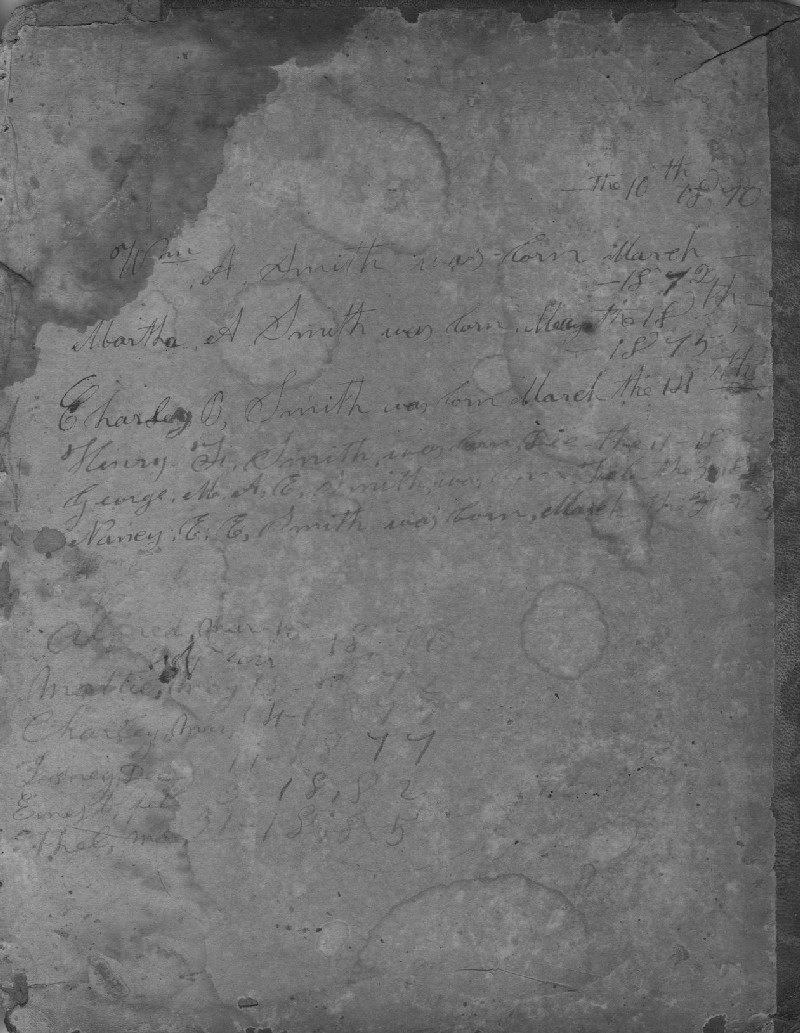 the 10th 1870
Wm A. Smith was born March
1872
Martha, A Smith was born, May the 18th
1875
Charley B, Smith was born March the 14th
Henry F, Smith, was born, Dec the 11- 18
George, M. A. E, Smith, was born Feb the
Nancy, E. E, Smith was born, March the 31
Alfred, March 18, 70
Mattie, May 18
Charley, Mar, 14-1875
Fisney, Dec 11-1877
Ernest, feb 1882
Ethel, Mar 31-1885